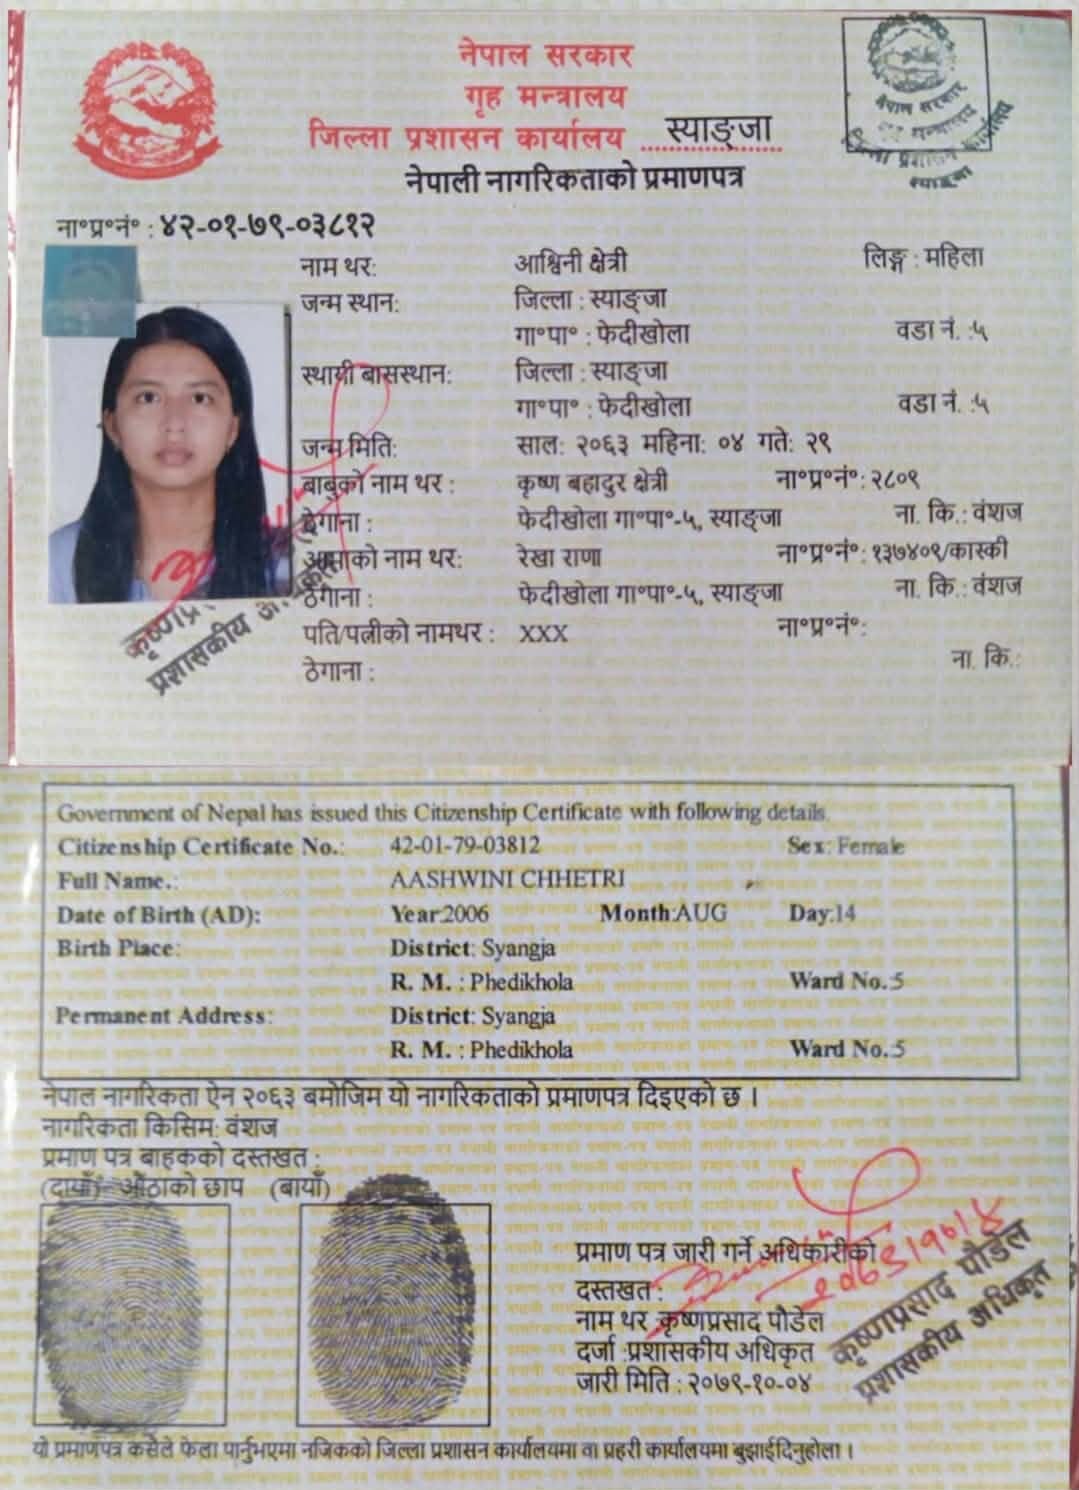 नेपाल सरकार
गृह मन्त्रालय
जिल्ला प्रशासन कार्यालय स्याङ्जा
नेपाली नागरिकताको प्रमाणपत्र
नेपाल सरकार
गृह मन्त्रालय
जिल्ला प्रशासन कार्यालय
स्याङ्जा
ना॰प्र॰नं॰ : ४२-०१-७९-०३८१२
नाम थर: आश्विनी क्षेत्री लिङ्ग : महिला
जन्म स्थान: जिल्ला : स्याङ्जा
गा॰पा॰ : फेदीखोला वडा नं. :५
स्थायी बासस्थान: जिल्ला : स्याङ्जा
गा॰पा॰ : फेदीखोला वडा नं. :५
जन्म मिति: साल: २०६३ महिना: ०४ गते: २९
बाबुको नाम थर : कृष्ण बहादुर क्षेत्री ना॰प्र॰नं॰: २८०९
ठेगाना : फेदीखोला गा॰पा॰-५, स्याङ्जा ना. कि.: वंशज
आमाको नाम थर: रेखा राणा ना॰प्र॰नं॰: १३७४०९/कास्की
ठेगाना : फेदीखोला गा॰पा॰-५, स्याङ्जा ना. कि.: वंशज
पति/पत्नीको नामथर : XXX ना॰प्र॰नं॰:
ठेगाना : ना. कि.:
प्रशासकीय अधिकृत
Government of Nepal has issued this Citizenship Certificate with following details.
Citizenship Certificate No.: 42-01-79-03812 Sex: Female
Full Name.: AASHWINI CHHETRI
Date of Birth (AD): Year:2006 Month:AUG Day:14
Birth Place: District: Syangja
R. M. : Phedikhola Ward No.:5
Permanent Address: District: Syangja
R. M. : Phedikhola Ward No.:5
नेपाल नागरिकता ऐन २०६३ बमोजिम यो नागरिकताको प्रमाणपत्र दिइएको छ ।
नागरिकता किसिम: वंशज
प्रमाण पत्र बाहकको दस्तखत :
(दायाँ) औंठाको छाप (बायाँ)
प्रमाण पत्र जारी गर्ने अधिकारीको
दस्तखत :
नाम थर :कृष्णप्रसाद पौडेल
दर्जा :प्रशासकीय अधिकृत
जारी मिति : २०७९-१०-०४
कृष्णप्रसाद पौडेल
प्रशासकीय अधिकृत
यो प्रमाणपत्र कसैले फेला पार्नुभएमा नजिकको जिल्ला प्रशासन कार्यालयमा वा प्रहरी कार्यालयमा बुझाईदिनुहोला ।